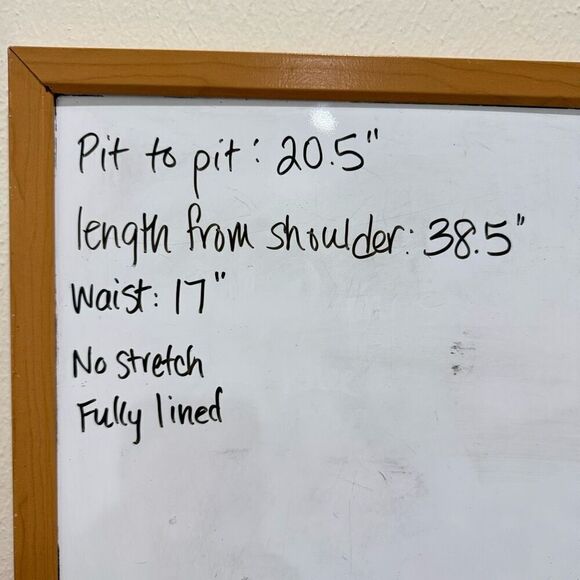 Pit to pit: 20.5"
length from shoulder: 38.5"
Waist: 17"
No stretch
Fully lined